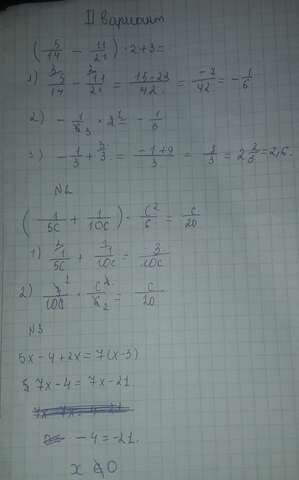 II вариант
(5/14 - 11/21) · 2+3=
1) 5/14 - 11/21 = 15-22/42 = -7/42 = -1/6
2) - 1/6 3 · 2 1 = - 1/3
3) - 1/3 + 3/3 = -1+9/3 = 8/3 = 2 2/3 = 2,6.
N2
(1/5c + 1/10c) · c²/6 = c/20
1) 1/5c + 1/10c = 3/10c
2) 3 1/10c · c²/6 2 = c/20
N3
5x-4+2x=7(x-3)
7x-4=7x-21
-4=-21.
x 0